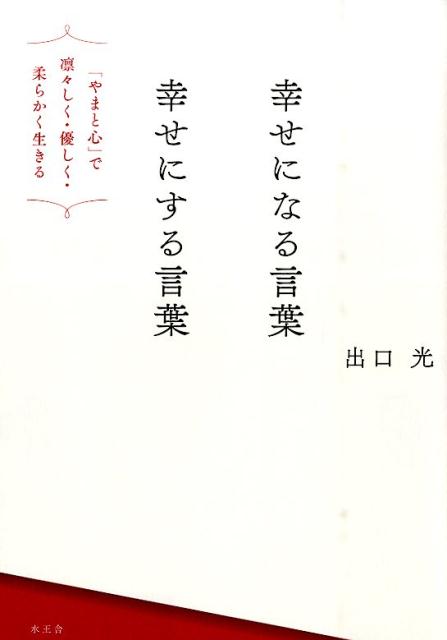 幸せになる言葉
幸せにする言葉
出口 光
「やまと心」で
凛々しく・優しく・
柔らかく生きる
水王舎